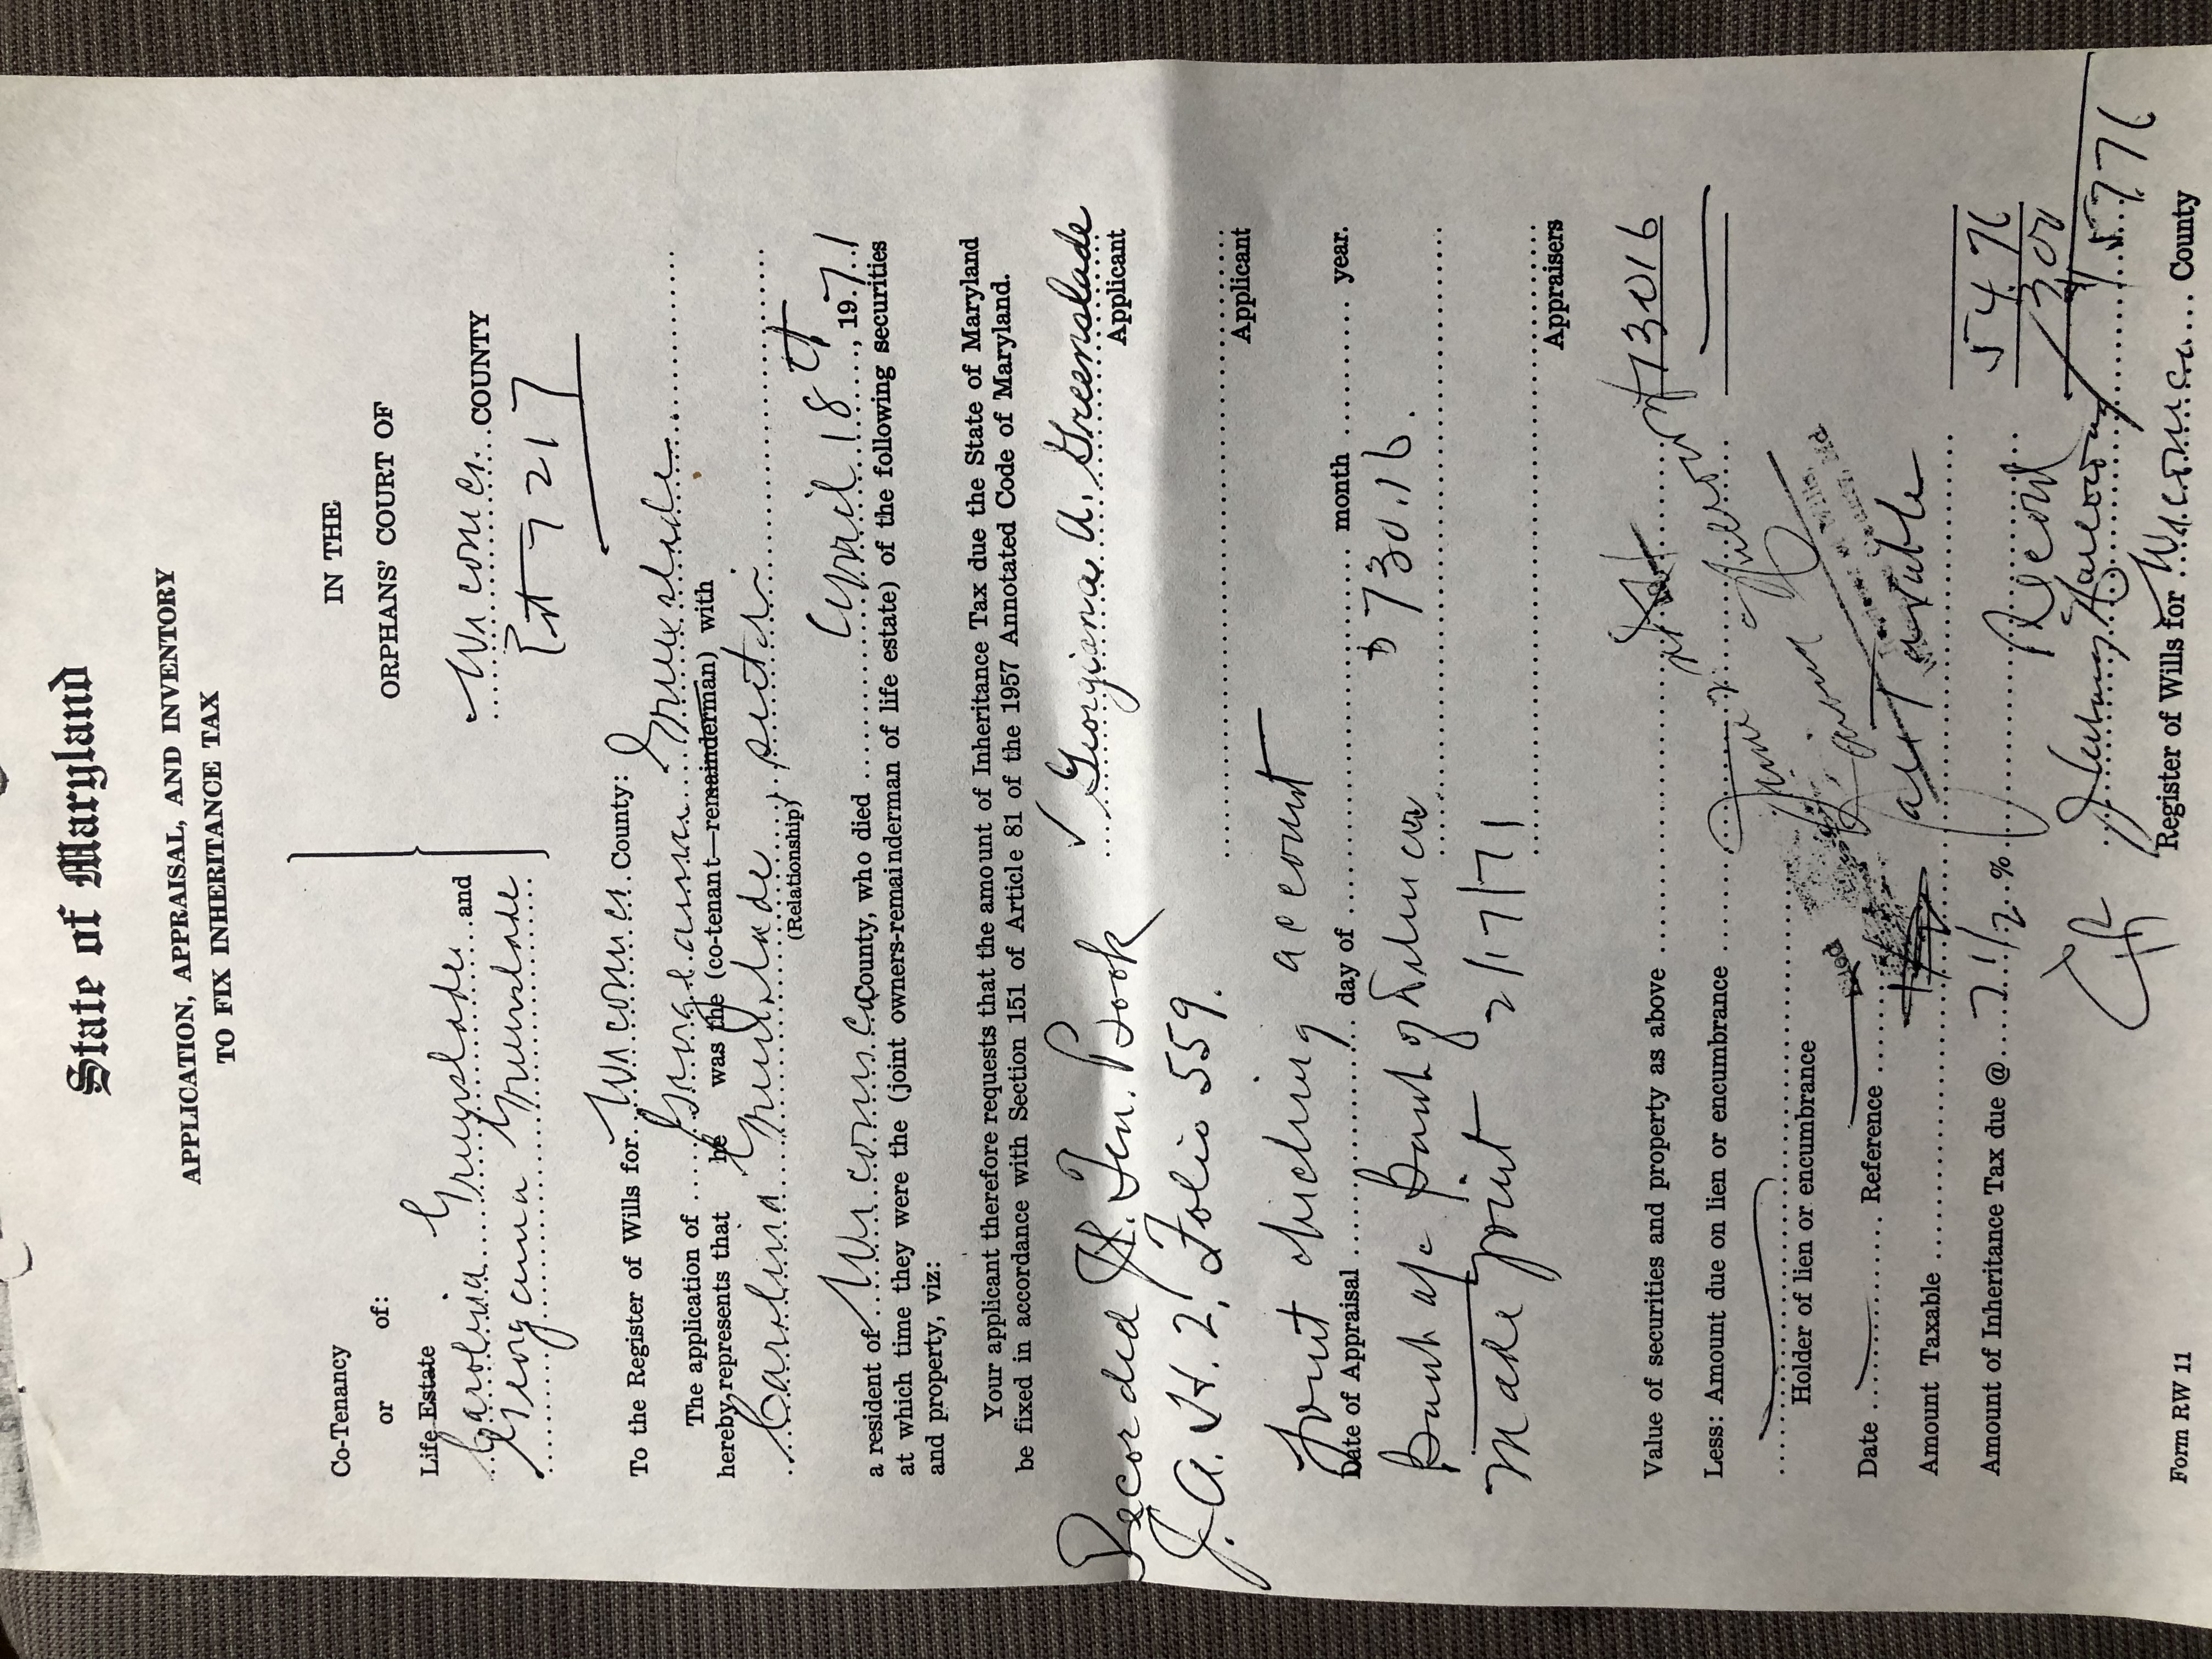 State of Maryland
APPLICATION, APPRAISAL, AND INVENTORY
TO FIX INHERITANCE TAX
Co-Tenancy
or of:
Life Estate
Carolina Greenslade and
Georganna Greenslade
IN THE
ORPHANS' COURT OF
Wicomico COUNTY
Est 7217
To the Register of Wills for Wicomico County:
The application of Georgeanna Greenslade
hereby represents that he was the (co-tenant—remainderman) with
Carolina Greenslade,
(Relationship)
a resident of Wicomico County, who died April 18th, 1971
at which time they were the (joint owners-remainderman of life estate) of the following securities
and property, viz:
Your applicant therefore requests that the amount of Inheritance Tax due the State of Maryland
be fixed in accordance with Section 151 of Article 81 of the 1957 Annotated Code of Maryland.
Recorded Jt. Ten. Book
✓ Georgiana A. Greenslade
Applicant
J.A.H. 2, Folio 559.
Applicant
Joint checking account
Date of Appraisal day of month year.
Bank a/c Bank of $730.16.
Made joint 2/17/71
Appraisers
Value of securities and property as above 730 16
Less: Amount due on lien or encumbrance
Holder of lien or encumbrance
Filed June
Register of Wills,
County, Md
Date Reference
Amount Taxable all Taxable
Amount of Inheritance Tax due @ 7 1/2 % 54.76
Record 3.00
$57.76
Register of Wills for Wicomico County
Form RW 11